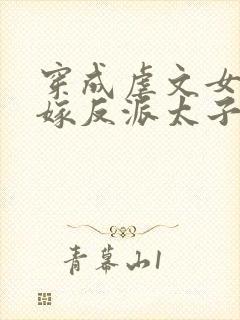 穿成虐文女
嫁反派太子
青幕山1